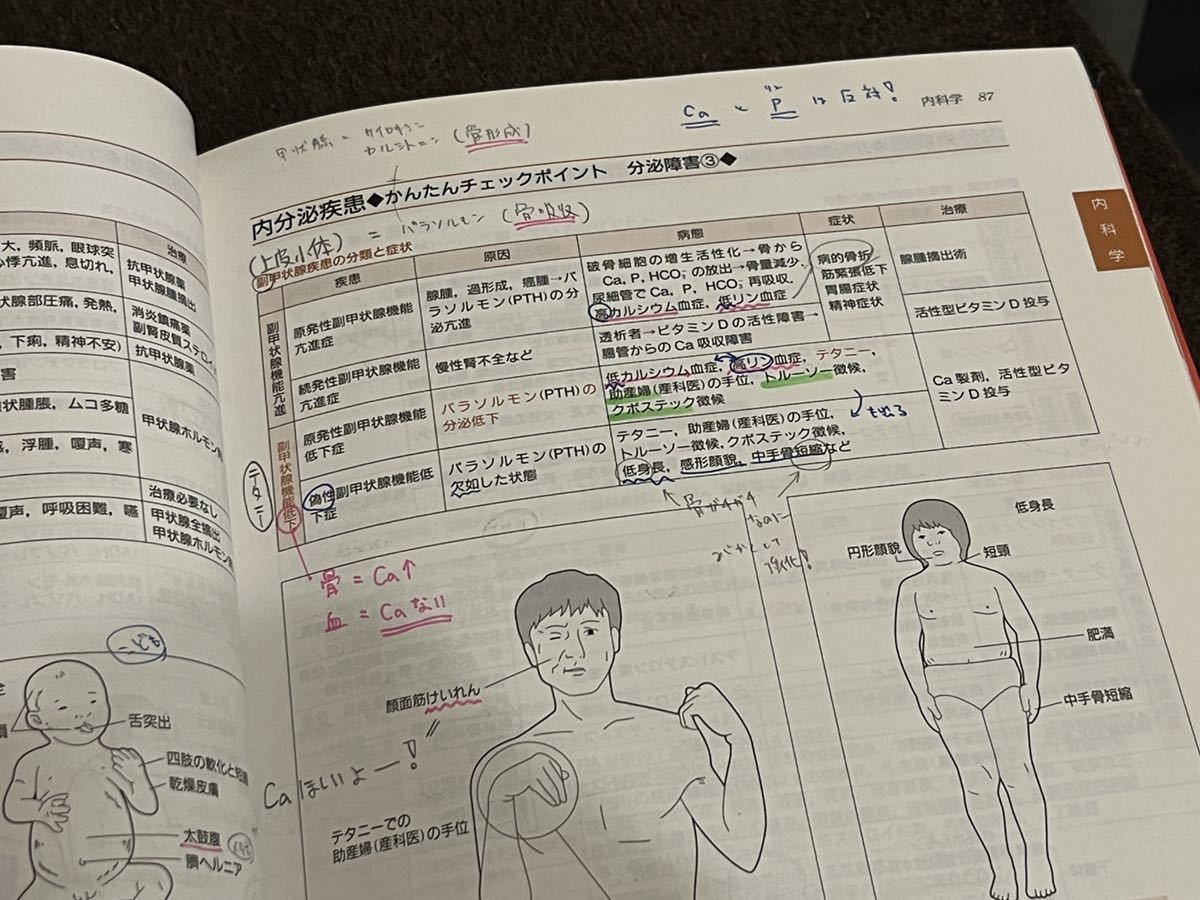 大，頻脈，眼球突
心悸亢進，息切れ，
状腺部圧痛，発熱，
下痢，精神不安）
害
状腫脹，ムコ多糖
浮腫，嗄声，寒
嗄声，呼吸困難，嚥
治療
抗甲状腺薬
甲状腺腫摘出
消炎鎮痛薬
副腎皮質ステロイ
抗甲状腺薬
甲状腺ホルモン
治療必要なし
甲状腺全摘出
甲状腺ホルモン
こども
舌突出
四肢の軟化と短縮
乾燥皮膚
太鼓腹
臍ヘルニア
Ca と P は反対！
リン
内科学 87
甲状腺＝サイロキシン
カルシトニン（骨形成）
内分泌疾患◆かんたんチェックポイント 分泌障害③◆
（上皮小体）＝パラソルモン（骨吸収）
副甲状腺疾患の分類と症状
疾患
原因
病態
症状
治療
副甲状腺機能亢進
原発性副甲状腺機能
亢進症
腺腫，過形成，癌腫→パ
ラソルモン(PTH)の分
泌亢進
破骨細胞の増生活性化→骨から
Ca，P，HCO₃⁻の放出→骨量減少．
尿細管でCa，P，HCO₃⁻再吸収．
高カルシウム血症，低リン血症
病的骨折
筋緊張低下
胃腸症状
精神症状
腺腫摘出術
続発性副甲状腺機能
亢進症
慢性腎不全など
透析者→ビタミンDの活性障害→
腸管からのCa吸収障害
活性型ビタミンD投与
副甲状腺機能低下
原発性副甲状腺機能
低下症
パラソルモン(PTH)の
分泌低下
低カルシウム血症，高リン血症，テタニー，
助産婦(産科医)の手位，トルーソー徴候，
クボステック徴候
Ca製剤，活性型ビタ
ミンD投与
偽性副甲状腺機能低
下症
パラソルモン(PTH)の
欠如した状態
テタニー，助産婦(産科医)の手位，
トルーソー徴候，クボステック徴候，
低身長，感形顔貌，中手骨短縮など
テタニー
骨がガチガチ
なのに
強化！
骨＝Ca↑
血＝Caない
顔面筋けいれん
Caほしいよー！
テタニーでの
助産婦(産科医)の手位
低身長
円形顔貌
短頸
肥満
中手骨短縮
内科学